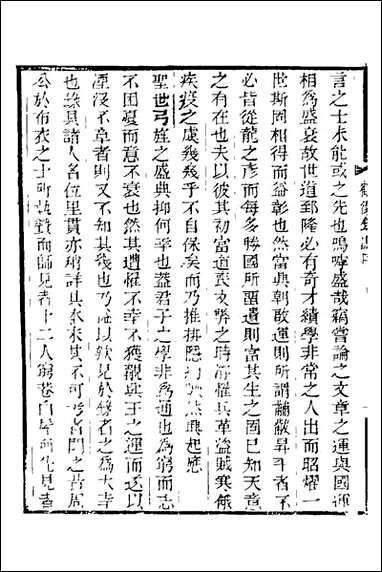 言之士未能或之先也嗚嘑盛哉竊嘗論之文章之運與國運
相爲盛衰故世道郅隆必有奇才績學非常之人出而昭燿一
世斯固相得而益彰也然當典朝啟運則所謂黼黻昇平者不
必皆從龍之彥而每多勝國所畱遺則當其生之固已知天意
之有在也夫以彼其初當道喪文弊之時游罹兵革盜賊寒餓
疾疫之虞幾幾乎不自保矣而乃推排隱 起應
聖世弓旌之盛典抑何幸也蓋君子之學非爲通也為窮而志
不困憂而意不衰也然其遭罹不幸不獲覯興王之運而遂以
湮沒不章者則又不知其幾也乃 以歎見於 者之爲大幸
也緣其諸人名位里貫亦 詳其 其不可 者 之昔周
公於布衣之士所執贄而師見者十二人窮巷白屋所先見者